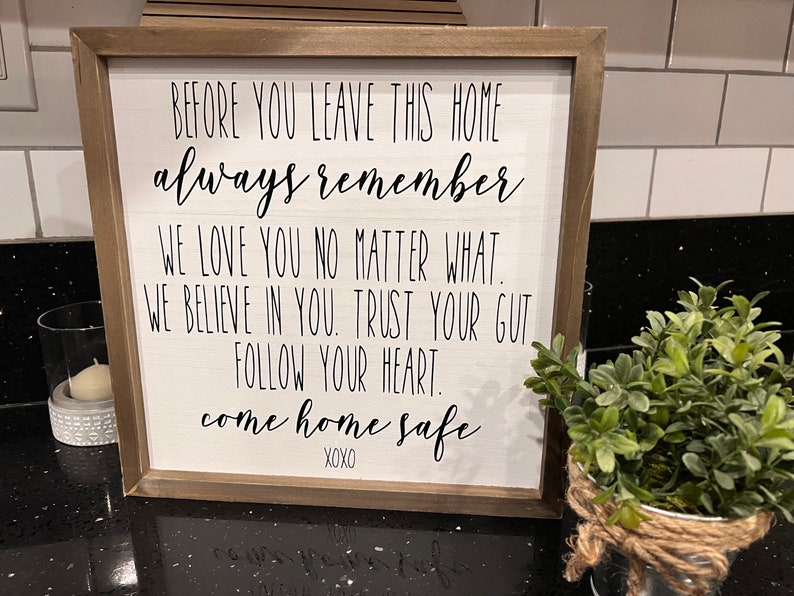 BEFORE YOU LEAVE THIS HOME
always remember
WE LOVE YOU NO MATTER WHAT.
WE BELIEVE IN YOU. TRUST YOUR GUT
FOLLOW YOUR HEART.
come home safe
XOXO